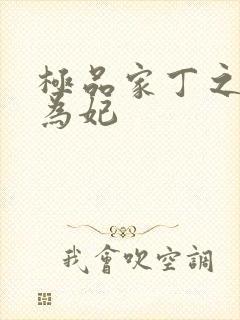 極品家丁之
為妃
我會吹空調